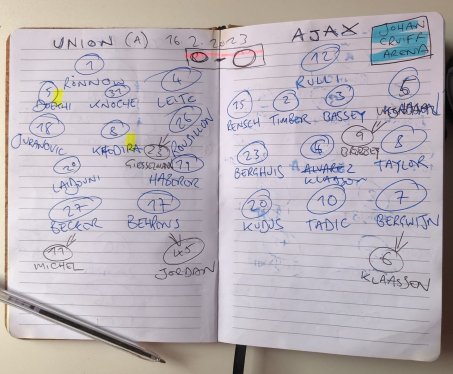 UNION (A) 16.2.2023
0-0
1
RÖNNOW
5 31 4
DOEKHI KNOCHE LEITE
18 8 26
JURANOVIC KHEDIRA ROUSILLON
23
GIESSELMANN
20 19
LAIDOUNI HABERER
27 17
BECKER BEHRENS
11 45
MICHEL JORDAN
AJAX
JOHAN
CRUIFF
ARENA
12
RULLI
15 2 3
RENSCH TIMBER BASSEY
9
BROBBEY
23 8
BERGHUIS ALVAREZ TAYLOR
KLAASSEN
20 10 7
KUDUS TADIC BERGWIJN
6
KLAASSEN